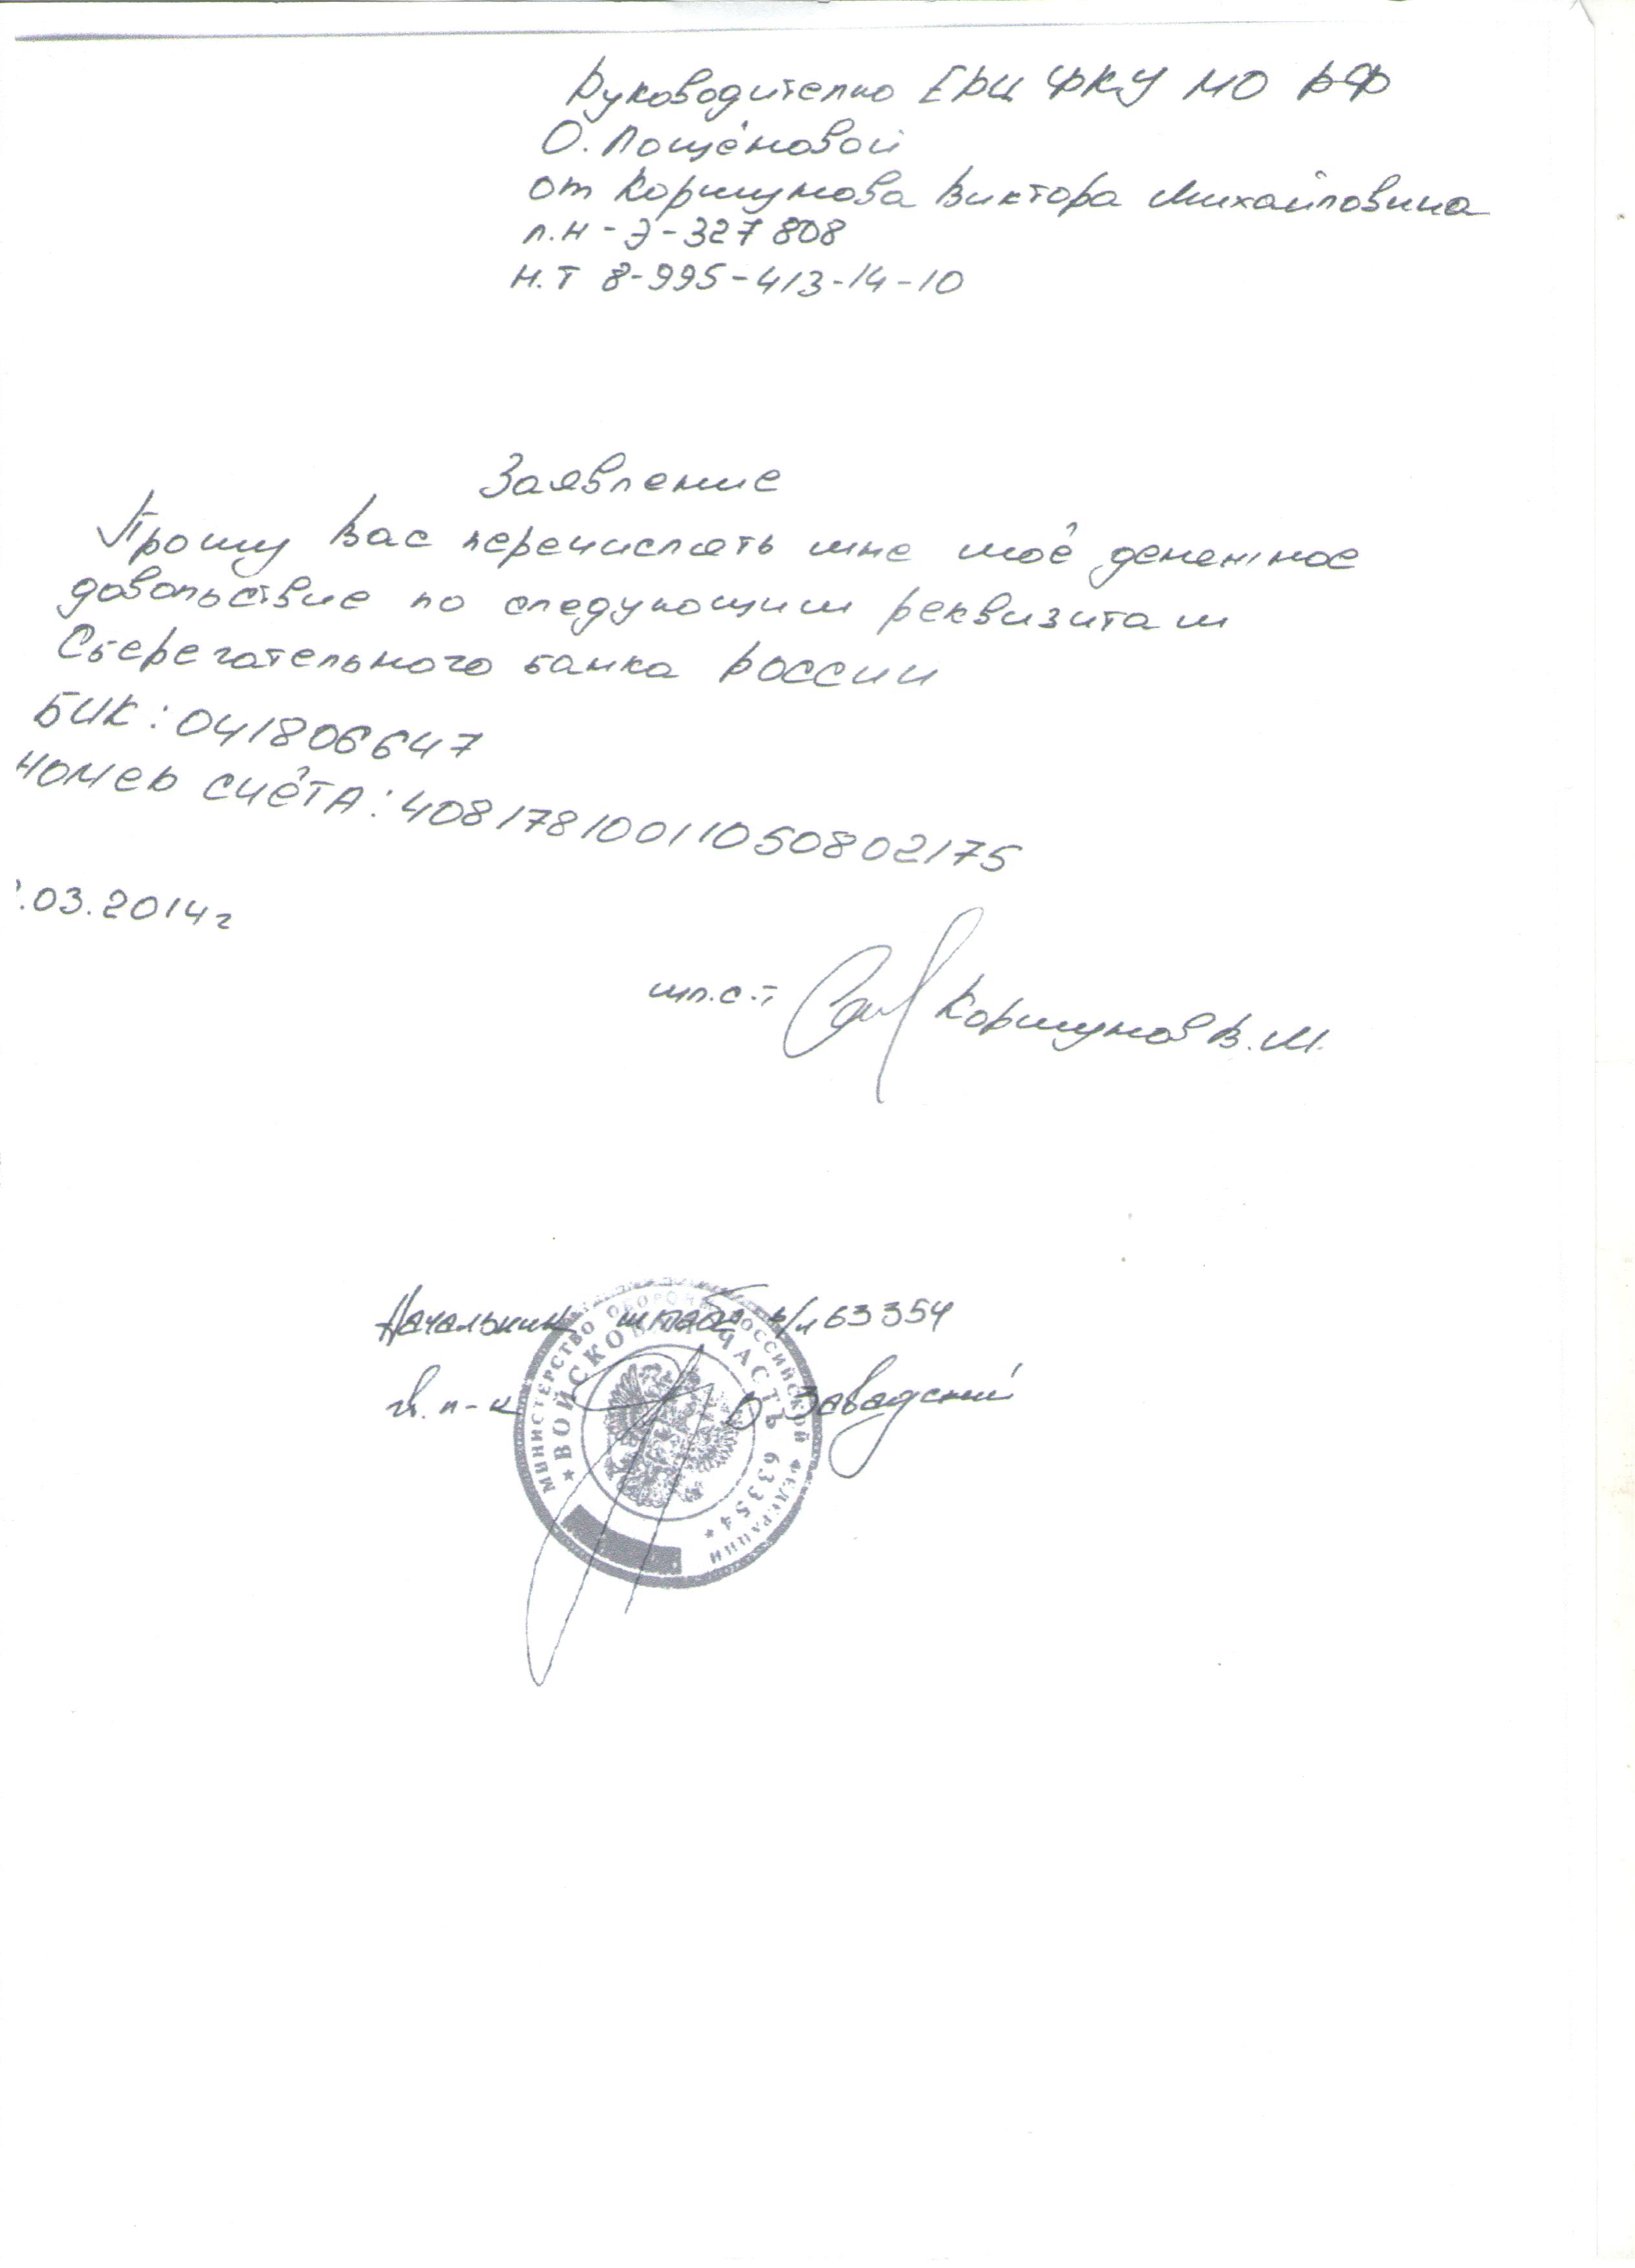 Руководителю ЕРЦ ФКУ МО РФ
О. Пощёновой
от Коршунова Виктора Михайловича
л.н - Э - 327 808
н.т 8-995-413-14-10
Заявление
Прошу Вас перечислять мне моё денежное
довольствие по следующим реквизитам
Сберегательного банка России
БИК: 041806647
номер счёта: 40817810011050802175
.03.2014г
мл.с-т Коршунов В.М.
Начальник штаба в/ч 63354
п-к В Завадский
МИНИСТЕРСТВО ОБОРОНЫ РОССИЙСКОЙ ФЕДЕРАЦИИ
* ВОЙСКОВАЯ ЧАСТЬ 63354 *